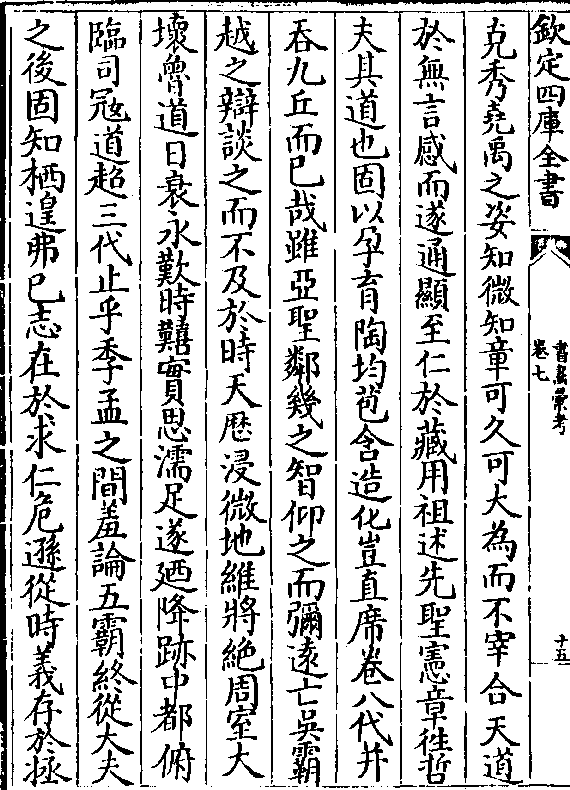 欽定四庫全書
書畫彙考
卷七
十五
克秀堯禹之姿知微知章可久可大為而不宰合天道
於無言感而遂通顯至仁於藏用祖述先聖憲章往哲
夫其道也固以孕育陶均苞含造化豈直席卷八代并
吞九丘而已哉雖亞聖鄰幾之智仰之而彌遠亡吳霸
越之辯談之而不及於時天厯浸微地維將絶周室大
壞魯道日衰永歎時囏實思濡足遂廼降跡中都俯
臨司冦道超三代止乎季孟之間羞論五霸終從大夫
之後固知栖遑弗已志在於求仁危遜從時義存於拯